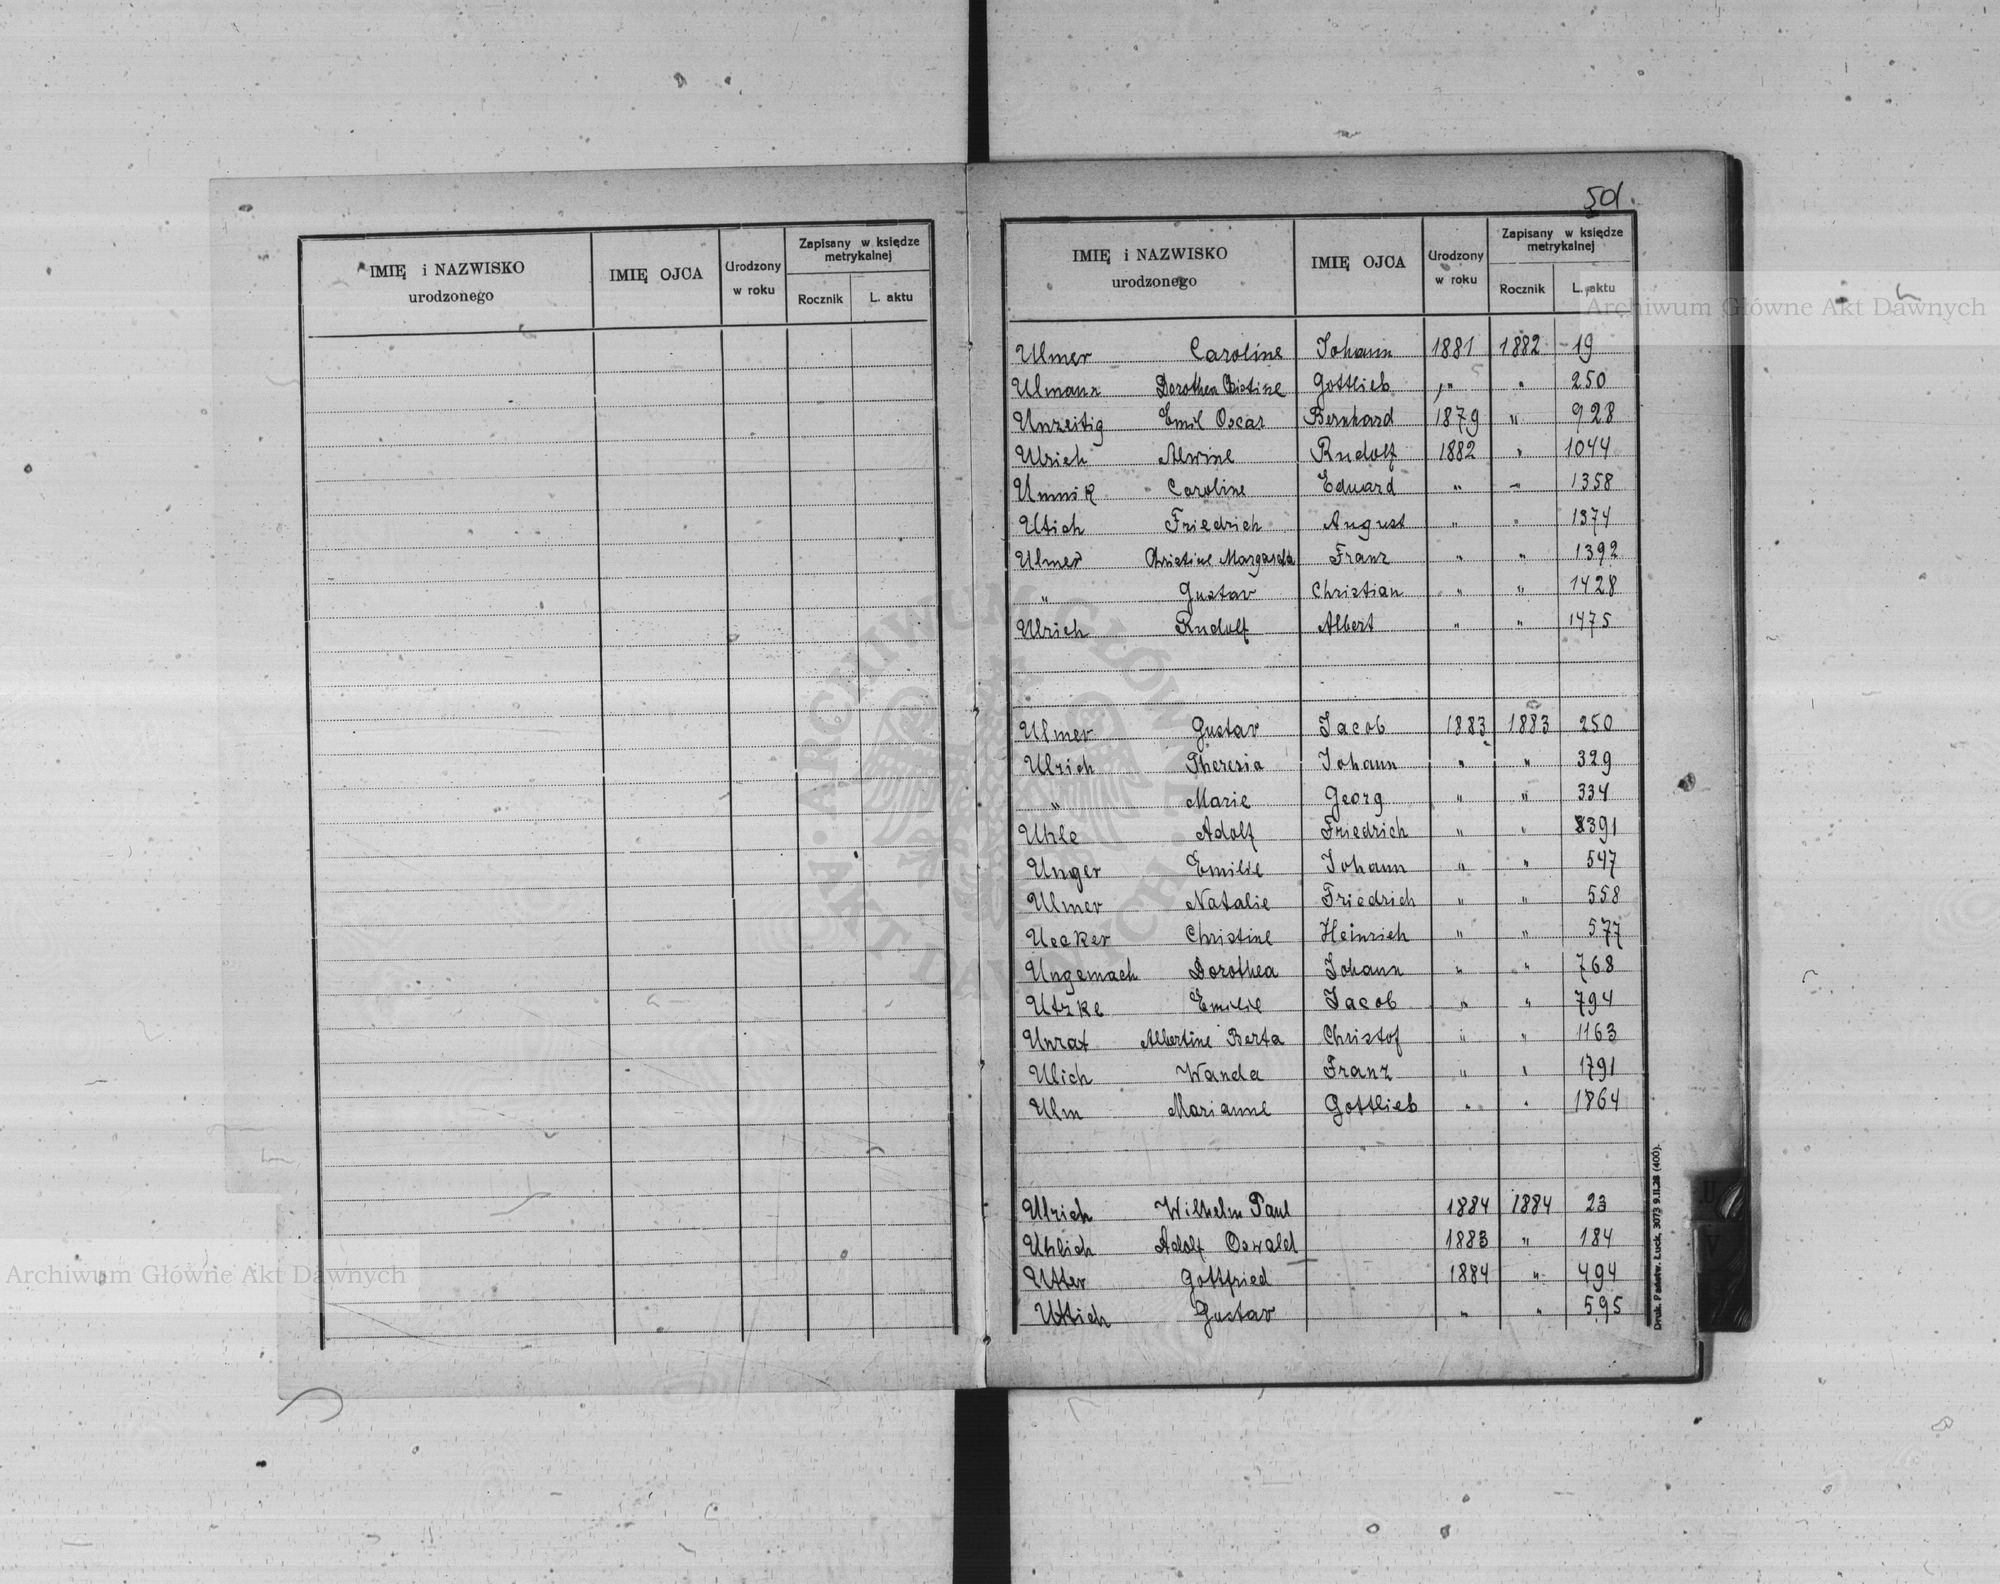 501.
IMIĘ i NAZWISKO urodzonego IMIĘ OJCA Urodzony w roku Zapisany w księdze metrykalnej Rocznik L. aktu
IMIĘ i NAZWISKO urodzonego IMIĘ OJCA Urodzony w roku Zapisany w księdze metrykalnej Rocznik L. aktu
Archiwum Główne Akt Dawnych
Ulmer Caroline Johann 1881 1882 19
Ulmann Dorothea Gottlieb " " 250
Unzeitig Emil Oscar Bernhard 1879 " 928
Ulrich Alwine Rudolf 1882 " 1044
Umnik Caroline Eduard " " 1358
Utich Friedrich August " " 1374
Ulmer Christine Margareta Franz " " 1392
" Gustav Christian " " 1428
Ulrich Rudolf Albert " " 1475
Ulmer Gustav Jacob 1883 1883 250
Ulrich Theresia Johann " " 329
" Marie Georg " " 334
Uhle Adolf Friedrich " " 391
Unger Emilie Johann " " 547
Ulmer Natalie Friedrich " " 558
Uecker Christine Heinrich " " 577
Ungemach Dorothea Johann " " 768
Utzke Emilie Jacob " " 794
Unrat Albertine Berta Christof " " 1163
Ulich Wanda Franz " " 1791
Ulm Marianne Gottlieb " " 1864
Ulrich Wilhelm Paul 1884 1884 23
Uhlich Adolf Oswald 1883 " 184
Utter Gottfried 1884 " 494
Uttich Gustav " " 595
Druk. Państw. Łuck, 3073 9.II.28 (400).
ARCHIWUM GŁÓWNE AKT DAWNYCH
Archiwum Główne Akt Dawnych
U
V